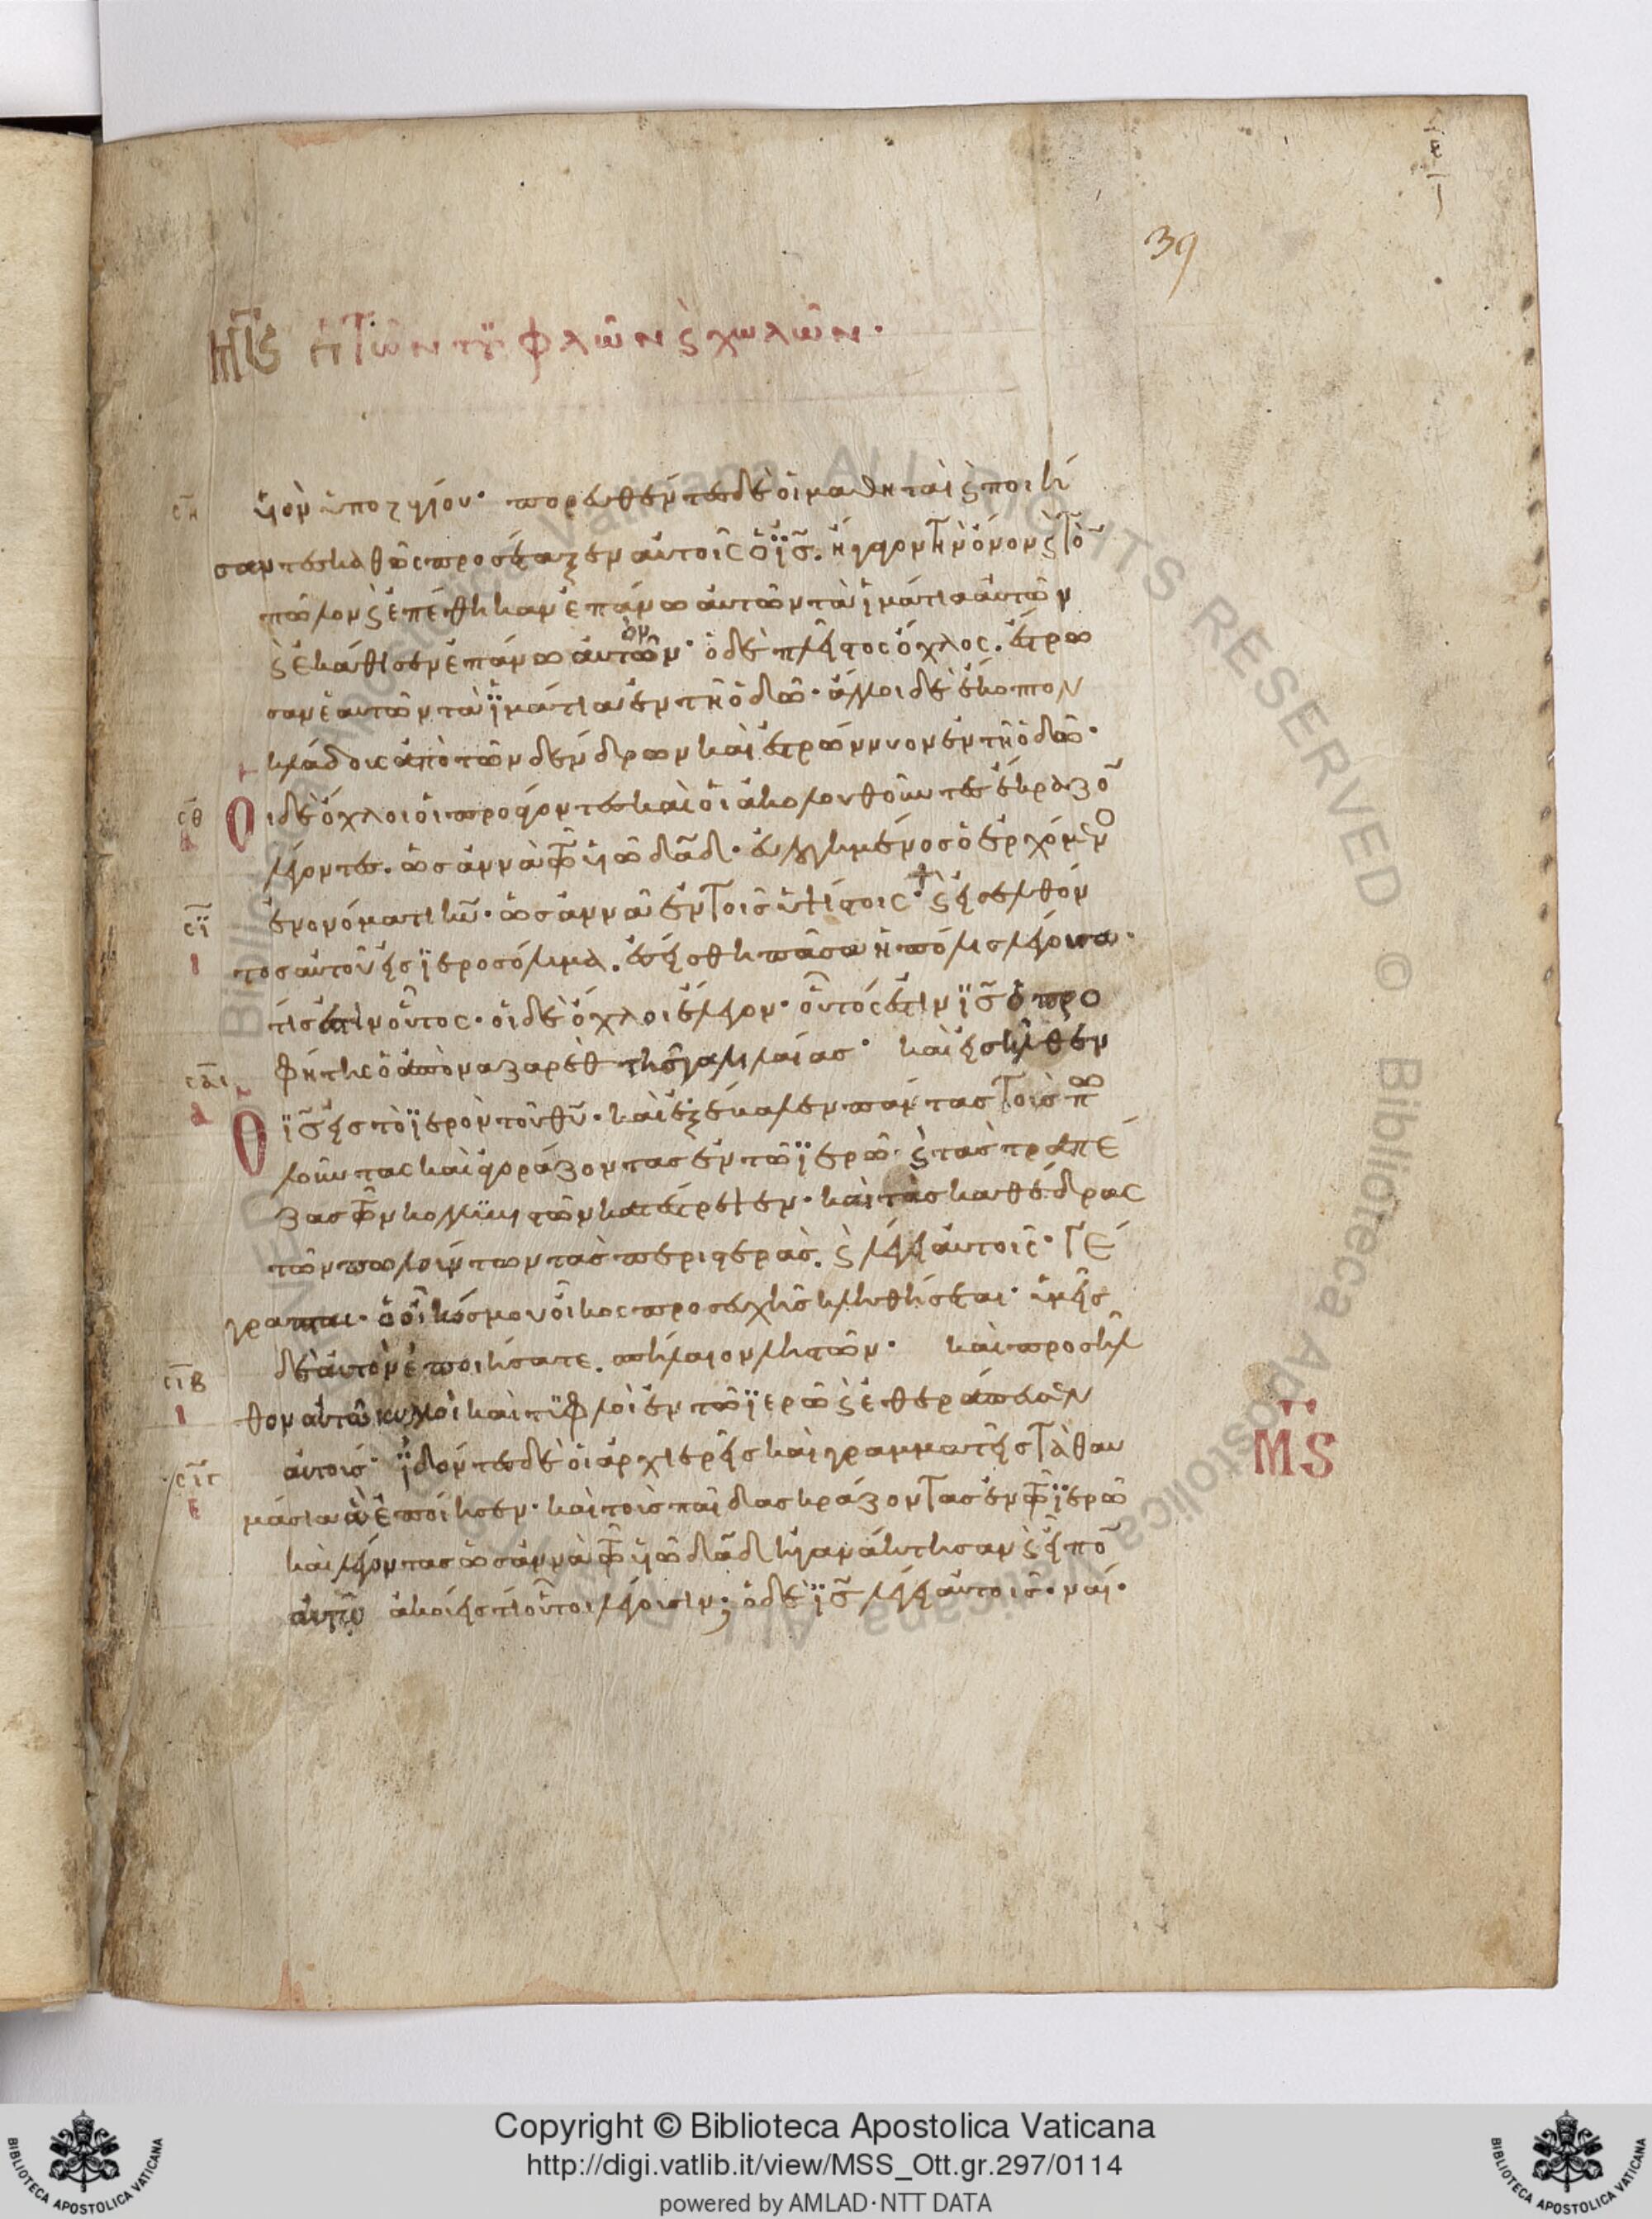 39
ΜϚ Π τῶν τυφλῶν ϛ χωλῶν·
ϲη
υἱὸν ὑποζυγίου· πορευθέντες δὲ οἱ μαθηταὶ ϛ ποιή
σαντες καθὼς προσέταξεν αὐτοῖς ὁ ἰ̅ς̅. ἤγαγον τὴν ὄνον ϛ τὸ̅
πῶλον ϛ ἐπέθηκαν ἐπάνω αὐτῶν τὰ ἱμάτια αὐτῶν
ϛ ἐκάθισεν ἐπάνω αὐτῶν· ὁ δὲ πλεῖστος ὄχλος. ἔστρω
σαν ἑαυτῶν τὰ ἱμάτια ἐν τῇ ὁδῷ· ἄλλοι δὲ ἔκοπτον
κλάδους ἀπὸ τῶν δένδρων καὶ ἐστρώννυον ἐν τῇ ὁδῷ·
ϲθ
Οἱ δὲ ὄχλοι οἱ προάγοντες καὶ οἱ ἀκολουθοῦντες ἔκραζο̅
λέγοντες. ὡσαννὰ τῷ υἱῷ δα̅δ· εὐλογημένος ὁ ἐρχόμεν
ἐν ὀνόματι κυ̅· ὡσαννὰ ἐν τοῖς ὑψίστοις· ϛ εἰσελθόν
ϲι
τος αὐτοῦ εἰς ἱεροσόλυμα. ἐσείσθη πᾶσα ἡ πόλις λέγουσα·
τίς ἐστιν οὗτος· οἱ δὲ ὄχλοι ἔλεγον· οὗτός ἐστιν ἰ̅ς̅ ὁ προ
φήτης ὁ ἀπὸ ναζαρὲθ τῆς γαλιλαίας· καὶ εἰσῆλθεν
ϲια
Ὁ ἰ̅ς̅ εἰς τὸ ἱερὸν τοῦ θυ̅· καὶ ἐξέβαλεν πάντας τοὺς πω
λοῦντας καὶ ἀγοράζοντας ἐν τῷ ἱερῷ· ϛ τὰς τραπέ
ζας τῶν κολλυβιστῶν κατέστρεψεν· καὶ τὰς καθέδρας
τῶν πωλούντων τὰς περιστεράς. ϛ λέγει αὐτοῖς· γέ
γραπται· ὁ οἶκός μου οἶκος προσευχῆς κληθήσεται· ὑμεῖς
δὲ αὐτὸν ἐποιήσατε. σπήλαιον λῃστῶν· καὶ προσῆλ
ϲιβ
θον αὐτῷ χωλοὶ καὶ τυφλοὶ ἐν τῷ ἱερῷ ϛ ἐθεράπευσεν
αὐτούς· ἰδόντες δὲ οἱ ἀρχιερεῖς καὶ γραμματεῖς τὰ θαυ
ϲιγ
μάσια ἃ ἐποίησεν· καὶ τοὺς παῖδας κράζοντας ἐν τῷ ἱερῷ
καὶ λέγοντας ὡσαννὰ τῷ υἱῷ δα̅δ ἠγανάκτησαν ϛ εἶπο̅
αὐτῷ ἀκούεις τί οὗτοι λέγουσιν; ὁ δὲ ἰ̅ς̅ λέγει αὐτοῖς· ναί·
ΜϚ
Copyright © Biblioteca Apostolica Vaticana
http://digi.vatlib.it/view/MSS_Ott.gr.297/0114
powered by AMLAD·NTT DATA
BIBLIOTECA APOSTOLICA VATICANA
BIBLIOTECA APOSTOLICA VATICANA
Biblioteca Apostolica Vaticana ALL RIGHTS RESERVED © Biblioteca Apostolica Vaticana ALL RIGHTS RESERVED ©